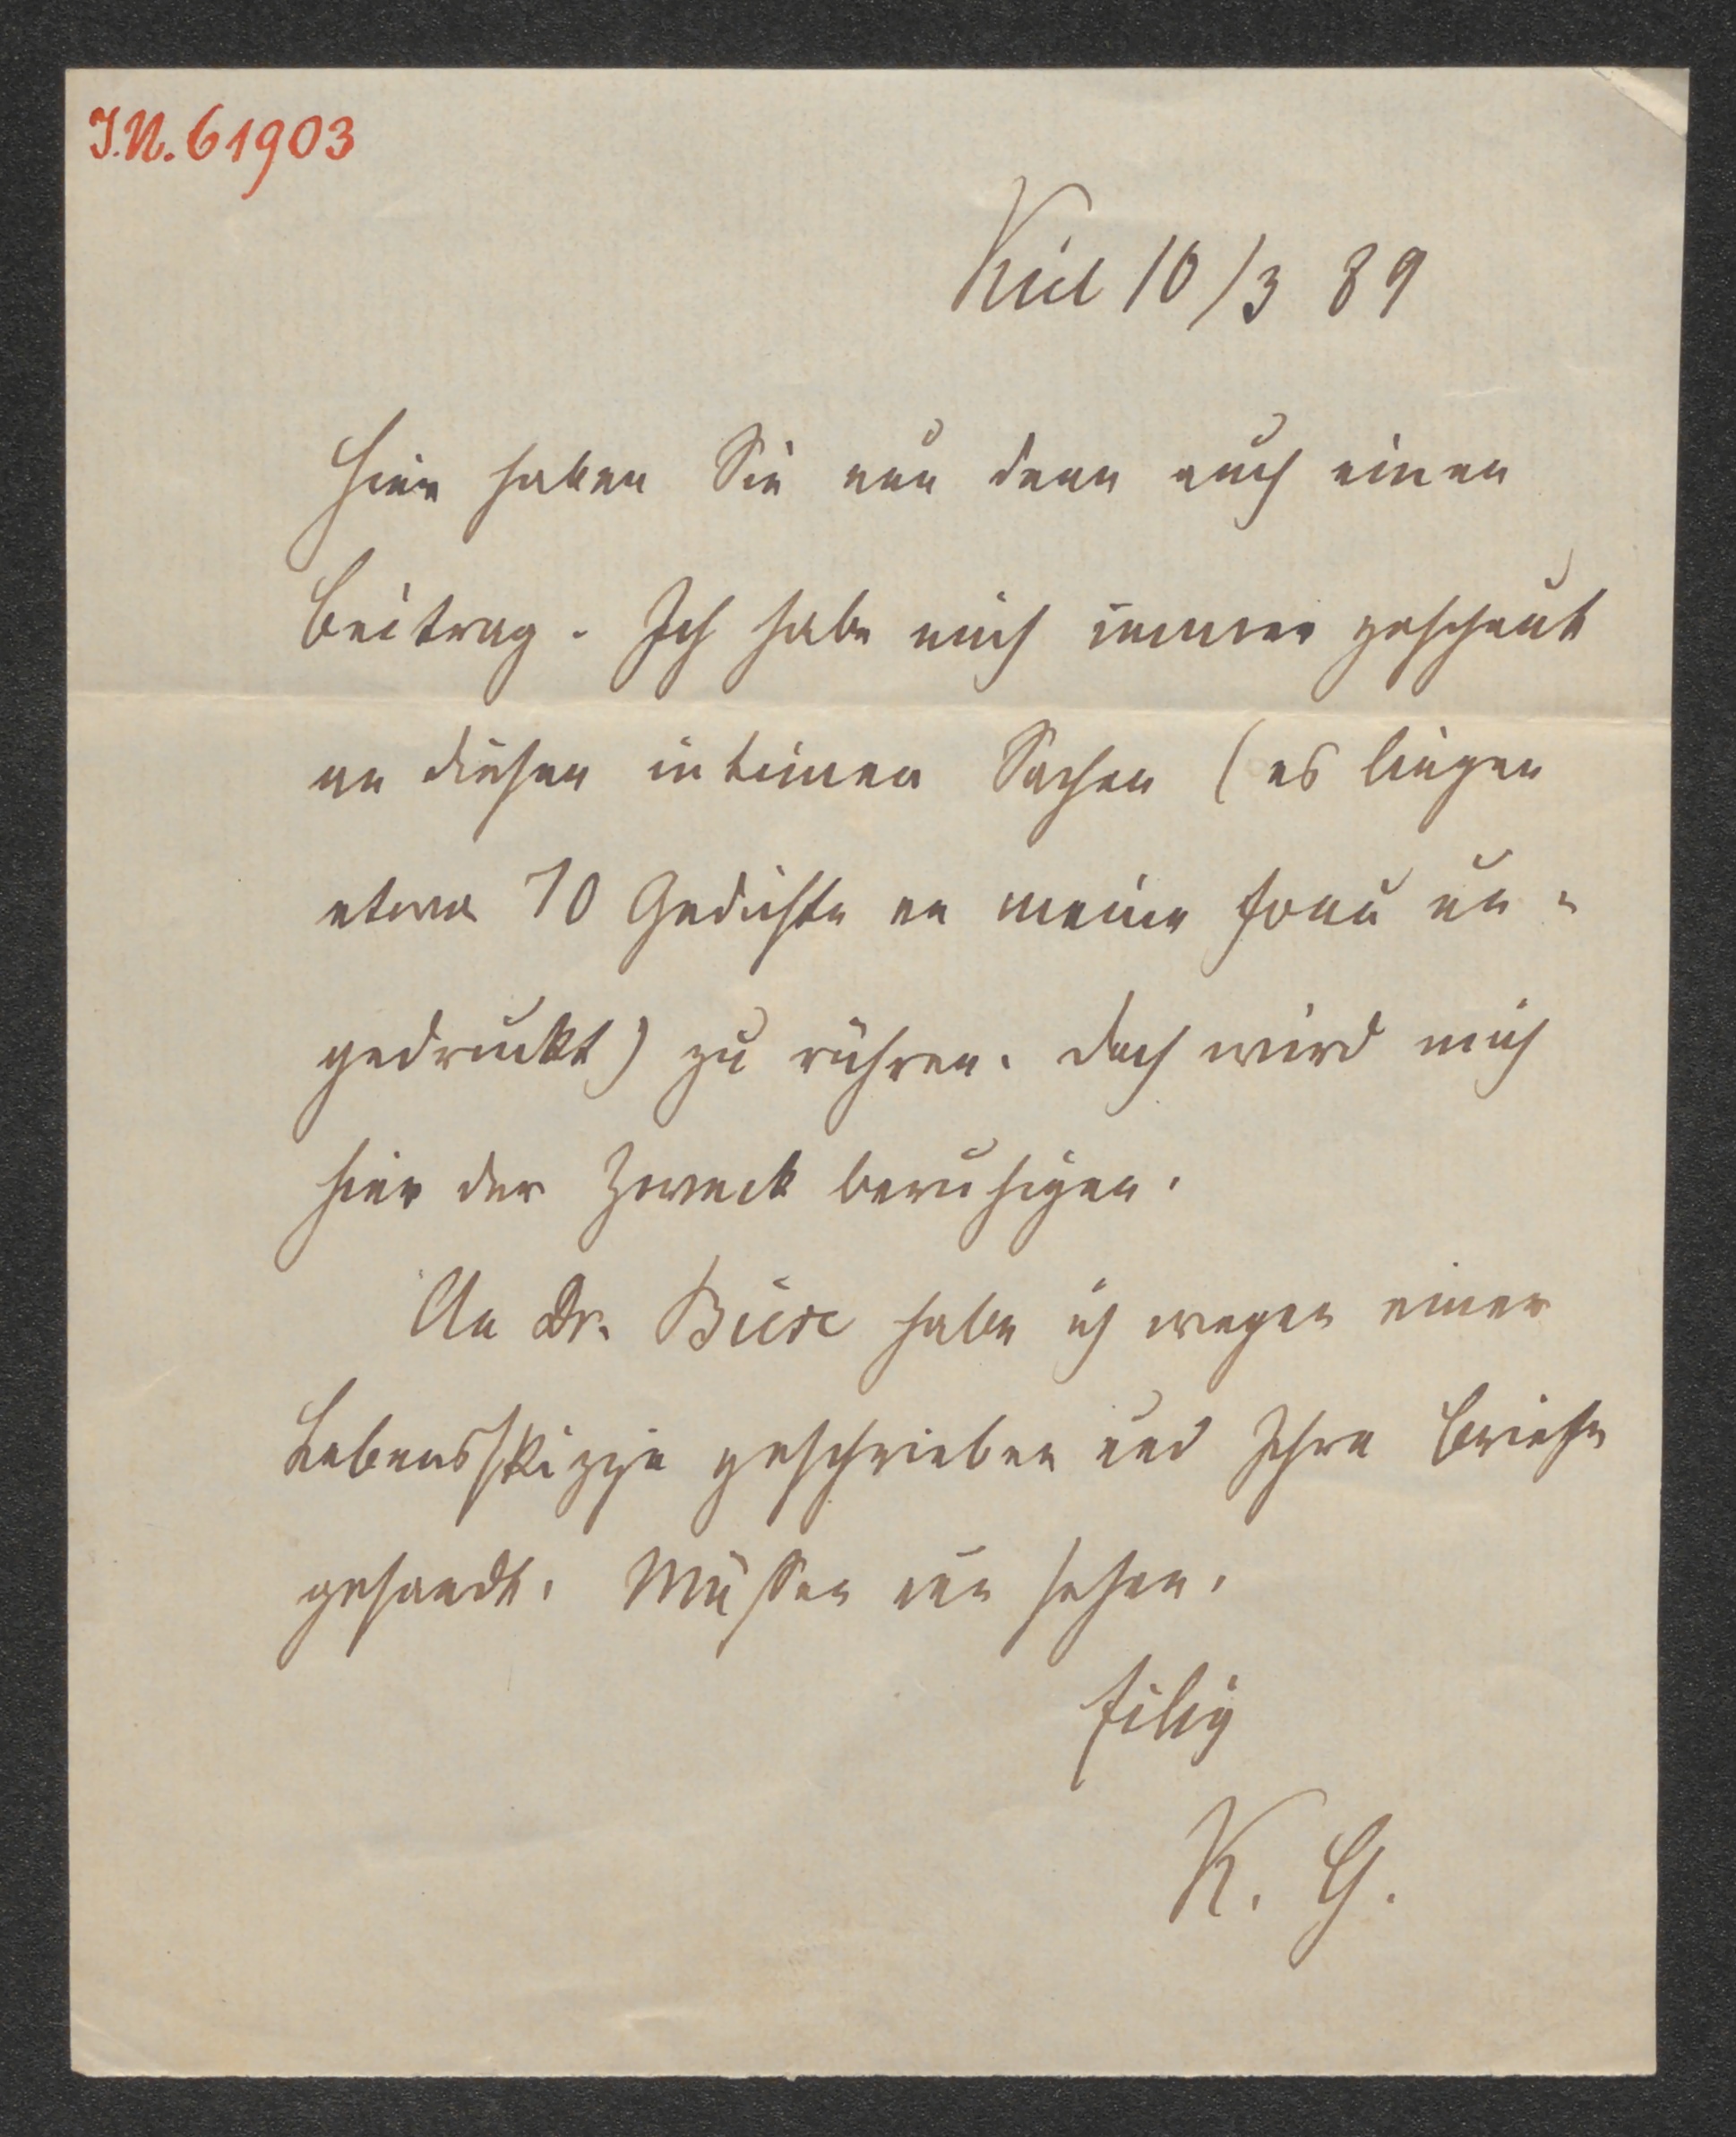 I.N. 61903
Kiel 10/3 89
Hier haben Sie nun denn auch einen
Beitrag. Ich habe mich immer gescheut
an diesen intimen Sachen (es liegen
etwa 70 Gedichte an meine Frau un-
gedruckt) zu rühren. Doch wird mich
hier der Zweck beruhigen.
An Dr. Biese habe ich wegen einer
Lebensskizze geschrieben und Ihre Briefe
gesandt. Müssen nun sehen.
Eilig
K. G.